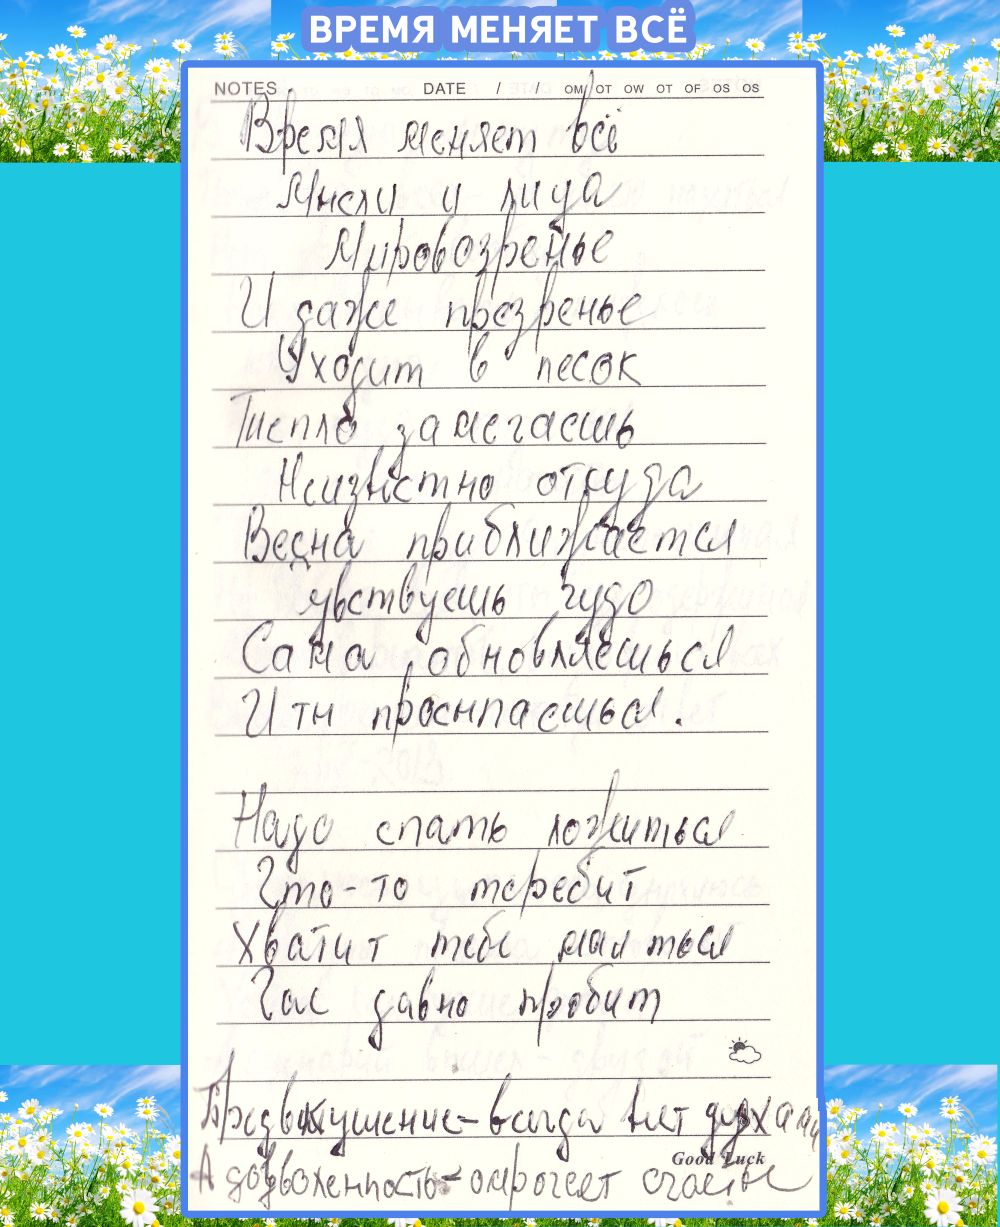 ВРЕМЯ МЕНЯЕТ ВСЁ
NOTES DATE / / OM OT OW OT OF OS OS
Время меняет всё
Мысли и лица
Мировозренье
И даже презренье
Уходит в песок
Тиепло замегаешь
Неизвестно откуда
Весна приближается
увствуешь чудо
Сама обновляешься
И ты просыпаешься.
Надо спать ложиться
Что-то теребит
Хватит тебе маяться
Час давно пробит
Предвкушение - всегда
Good Luck
А - омрочает счастье